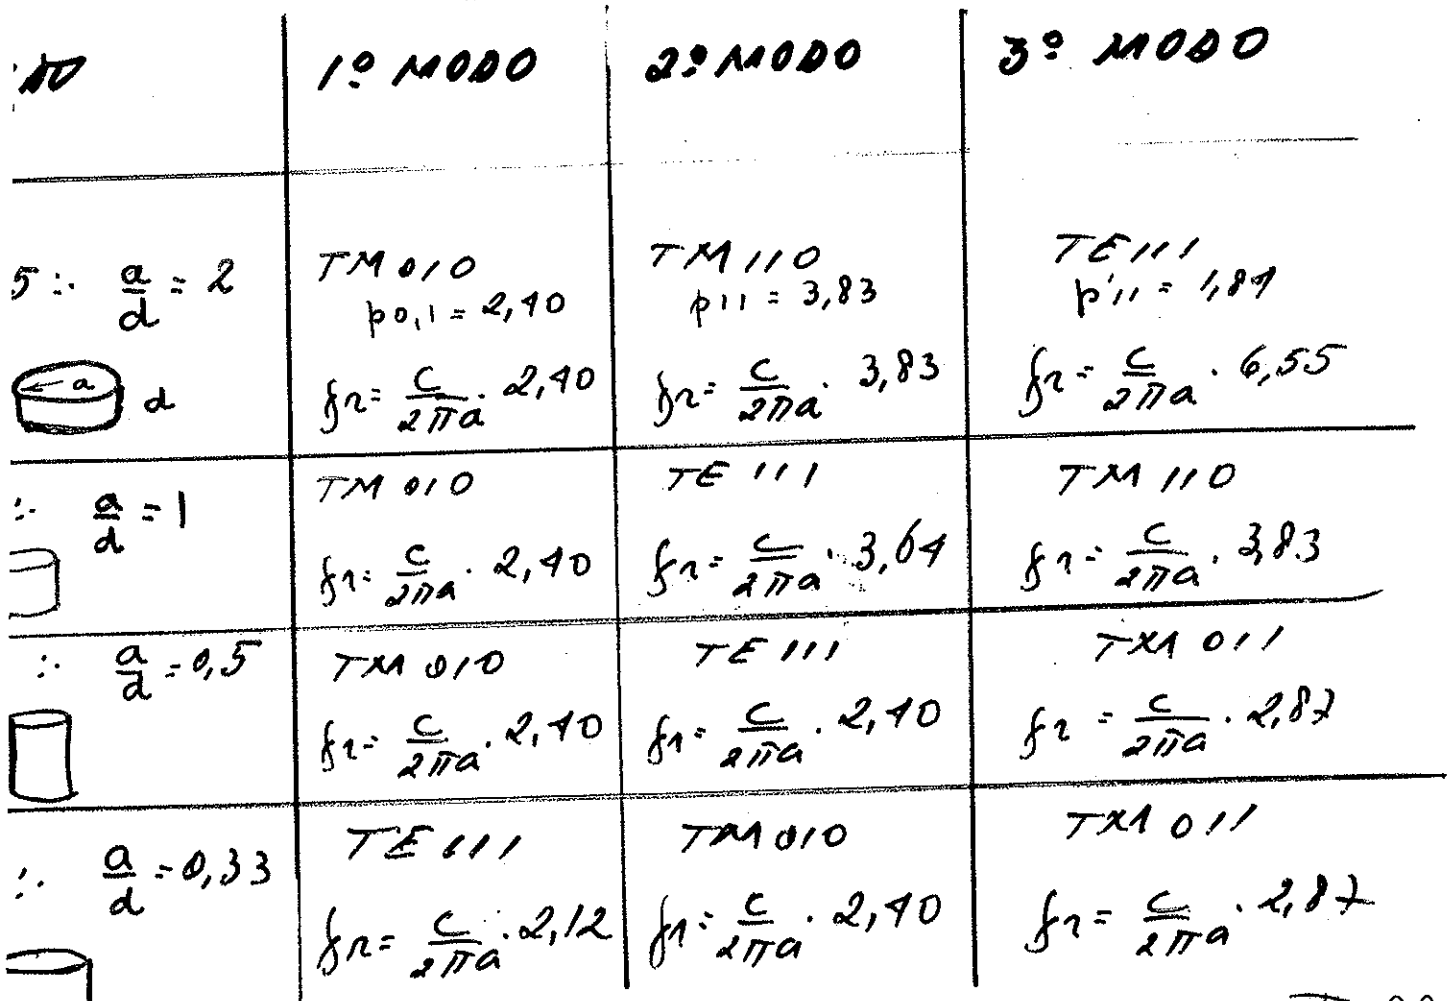 1º MODO 2º MODO 3º MODO
5 ∴ a/d = 2
TM 010
p0,1 = 2,40
fr = c/2πa · 2,40
TM 110
p11 = 3,83
fr = c/2πa · 3,83
TE 111
p'11 = 1,84
fr = c/2πa · 6,55
a
d
∴ a/d = 1
TM 010
fr = c/2πa · 2,40
TE 111
fr = c/2πa · 3,64
TM 110
fr = c/2πa · 3,83
∴ a/d = 0,5
TM 010
fr = c/2πa · 2,40
TE 111
fr = c/2πa · 2,40
TM 011
fr = c/2πa · 2,87
∴ a/d = 0,33
TE 111
fr = c/2πa · 2,12
TM 010
fr = c/2πa · 2,40
TM 011
fr = c/2πa · 2,87